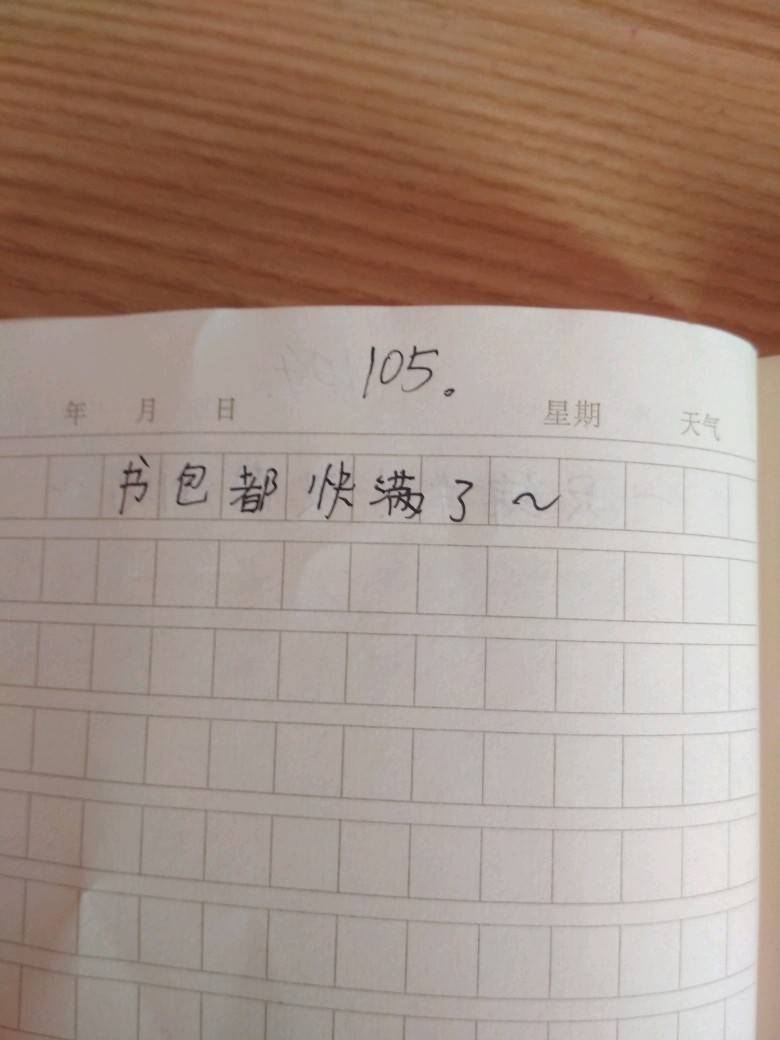 105。
年 月 日 星期 天气
书包都快满了~